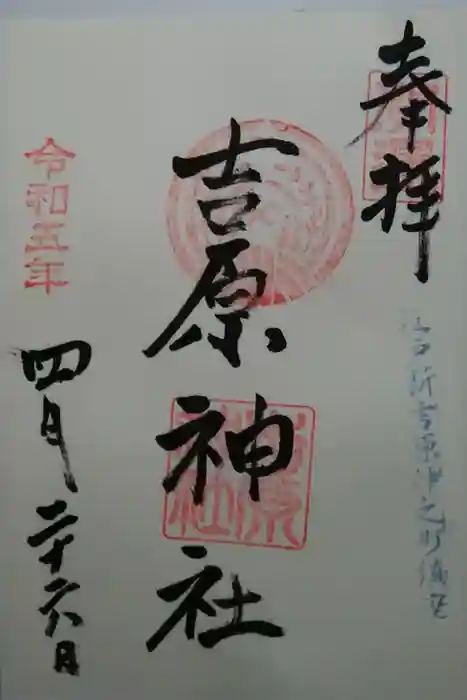 奉拝
吉原神社
令和五年
四月二十六日